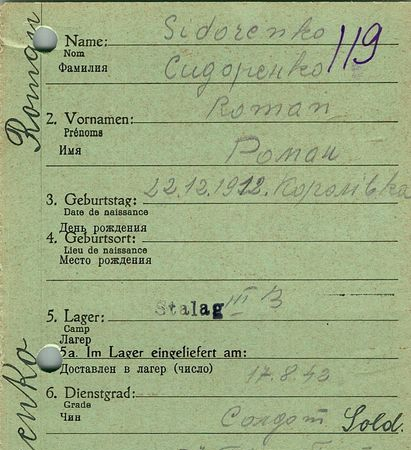 Roman
enko
Sidorenko
Name:
Nom
Фамилия
Сидоренко
119
Roman
2. Vornamen:
Prénoms
Имя
Роман
22.12.1912. Королівка
3. Geburtstag:
Date de naissance
День рождения
4. Geburtsort:
Lieu de naissance
Место рождения
5. Lager: Stalag III B
Camp
Лагер
5a. Im Lager eingeliefert am:
Доставлен в лагер (число) 17.8.43
6. Dienstgrad:
Grade
Чин
Солдат Sold.